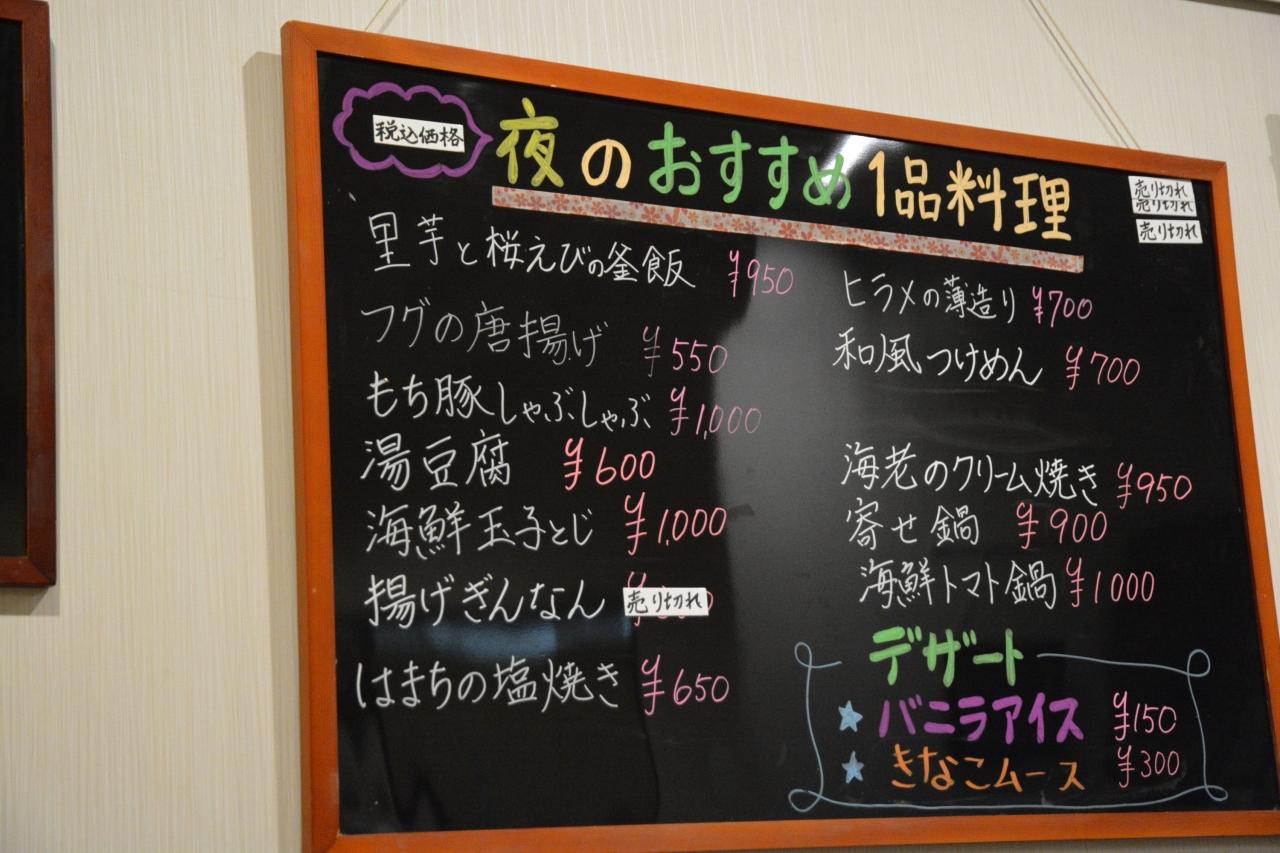 税込価格
夜のおすすめ1品料理
売り切れ
売り切れ
売り切れ
里芋と桜えびの釜飯 ¥950
フグの唐揚げ ¥550
もち豚しゃぶしゃぶ ¥1,000
湯豆腐 ¥600
海鮮玉子とじ ¥1,000
揚げぎんなん 売り切れ
はまちの塩焼き ¥650
ヒラメの薄造り ¥700
和風つけめん ¥700
海老のクリーム焼き ¥950
寄せ鍋 ¥900
海鮮トマト鍋 ¥1000
デザート
★ バニラアイス ¥150
★ きなこムース ¥300